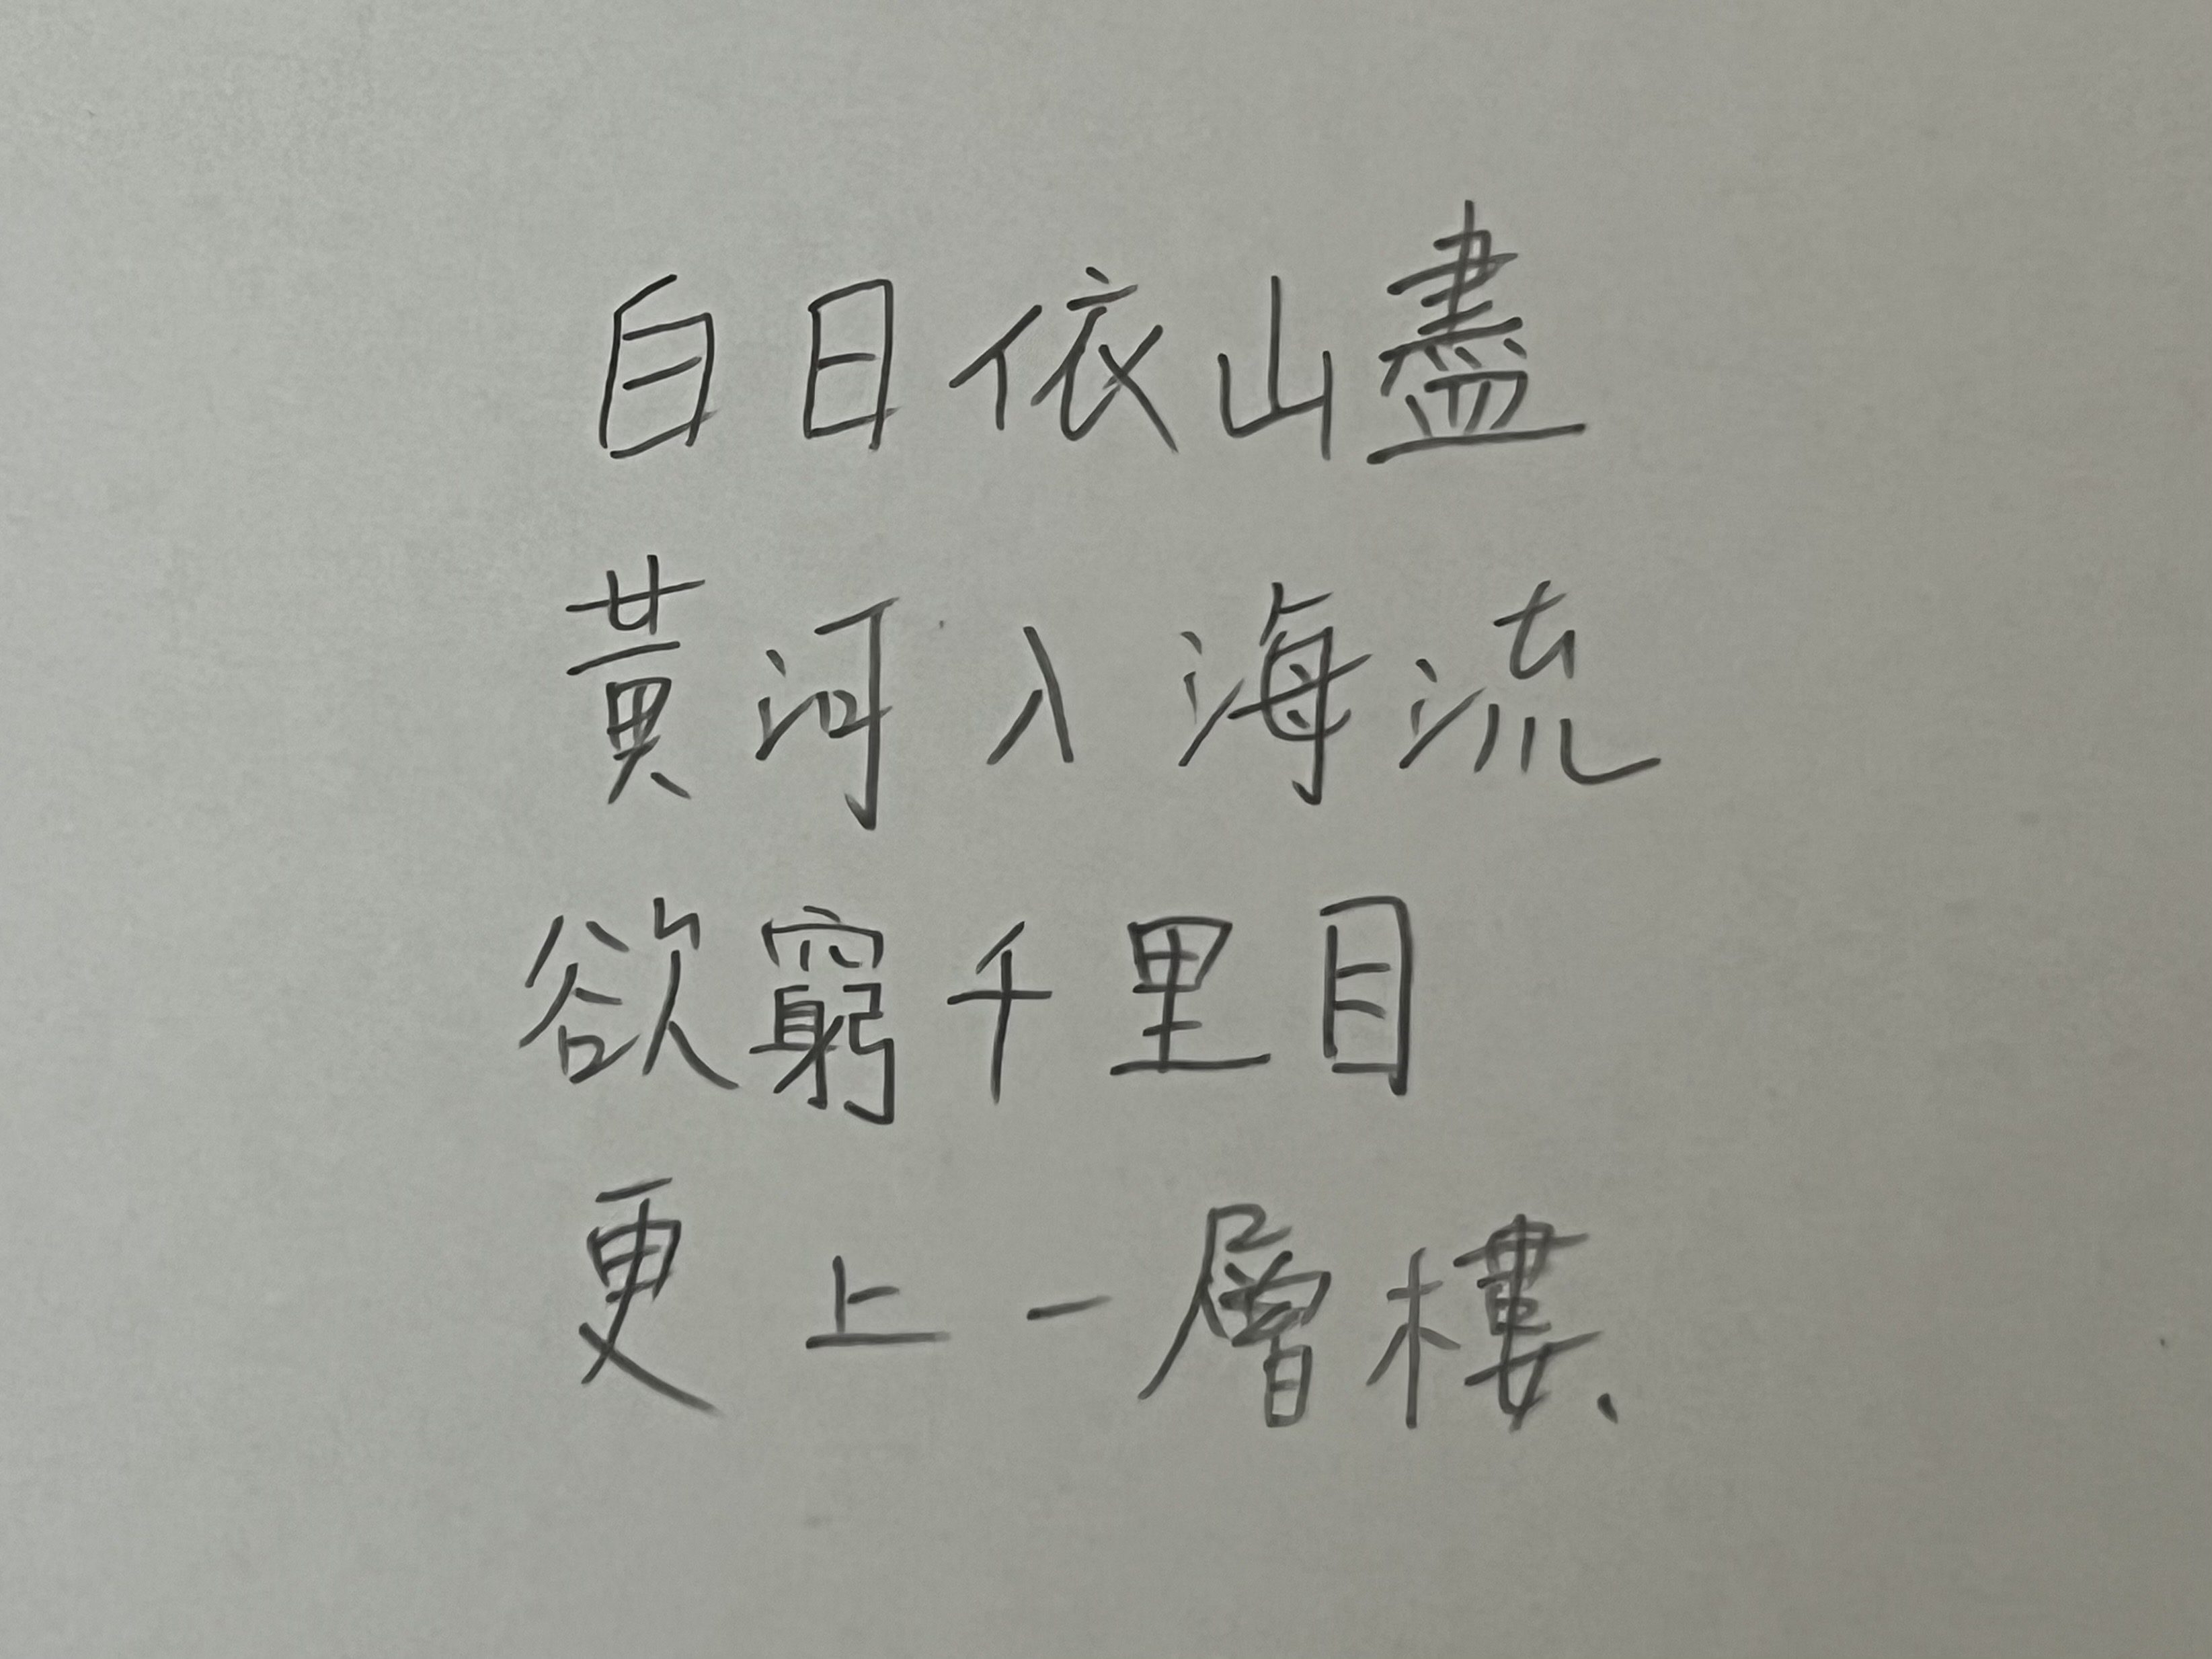 白日依山盡
黃河入海流
欲窮千里目
更上一層樓、